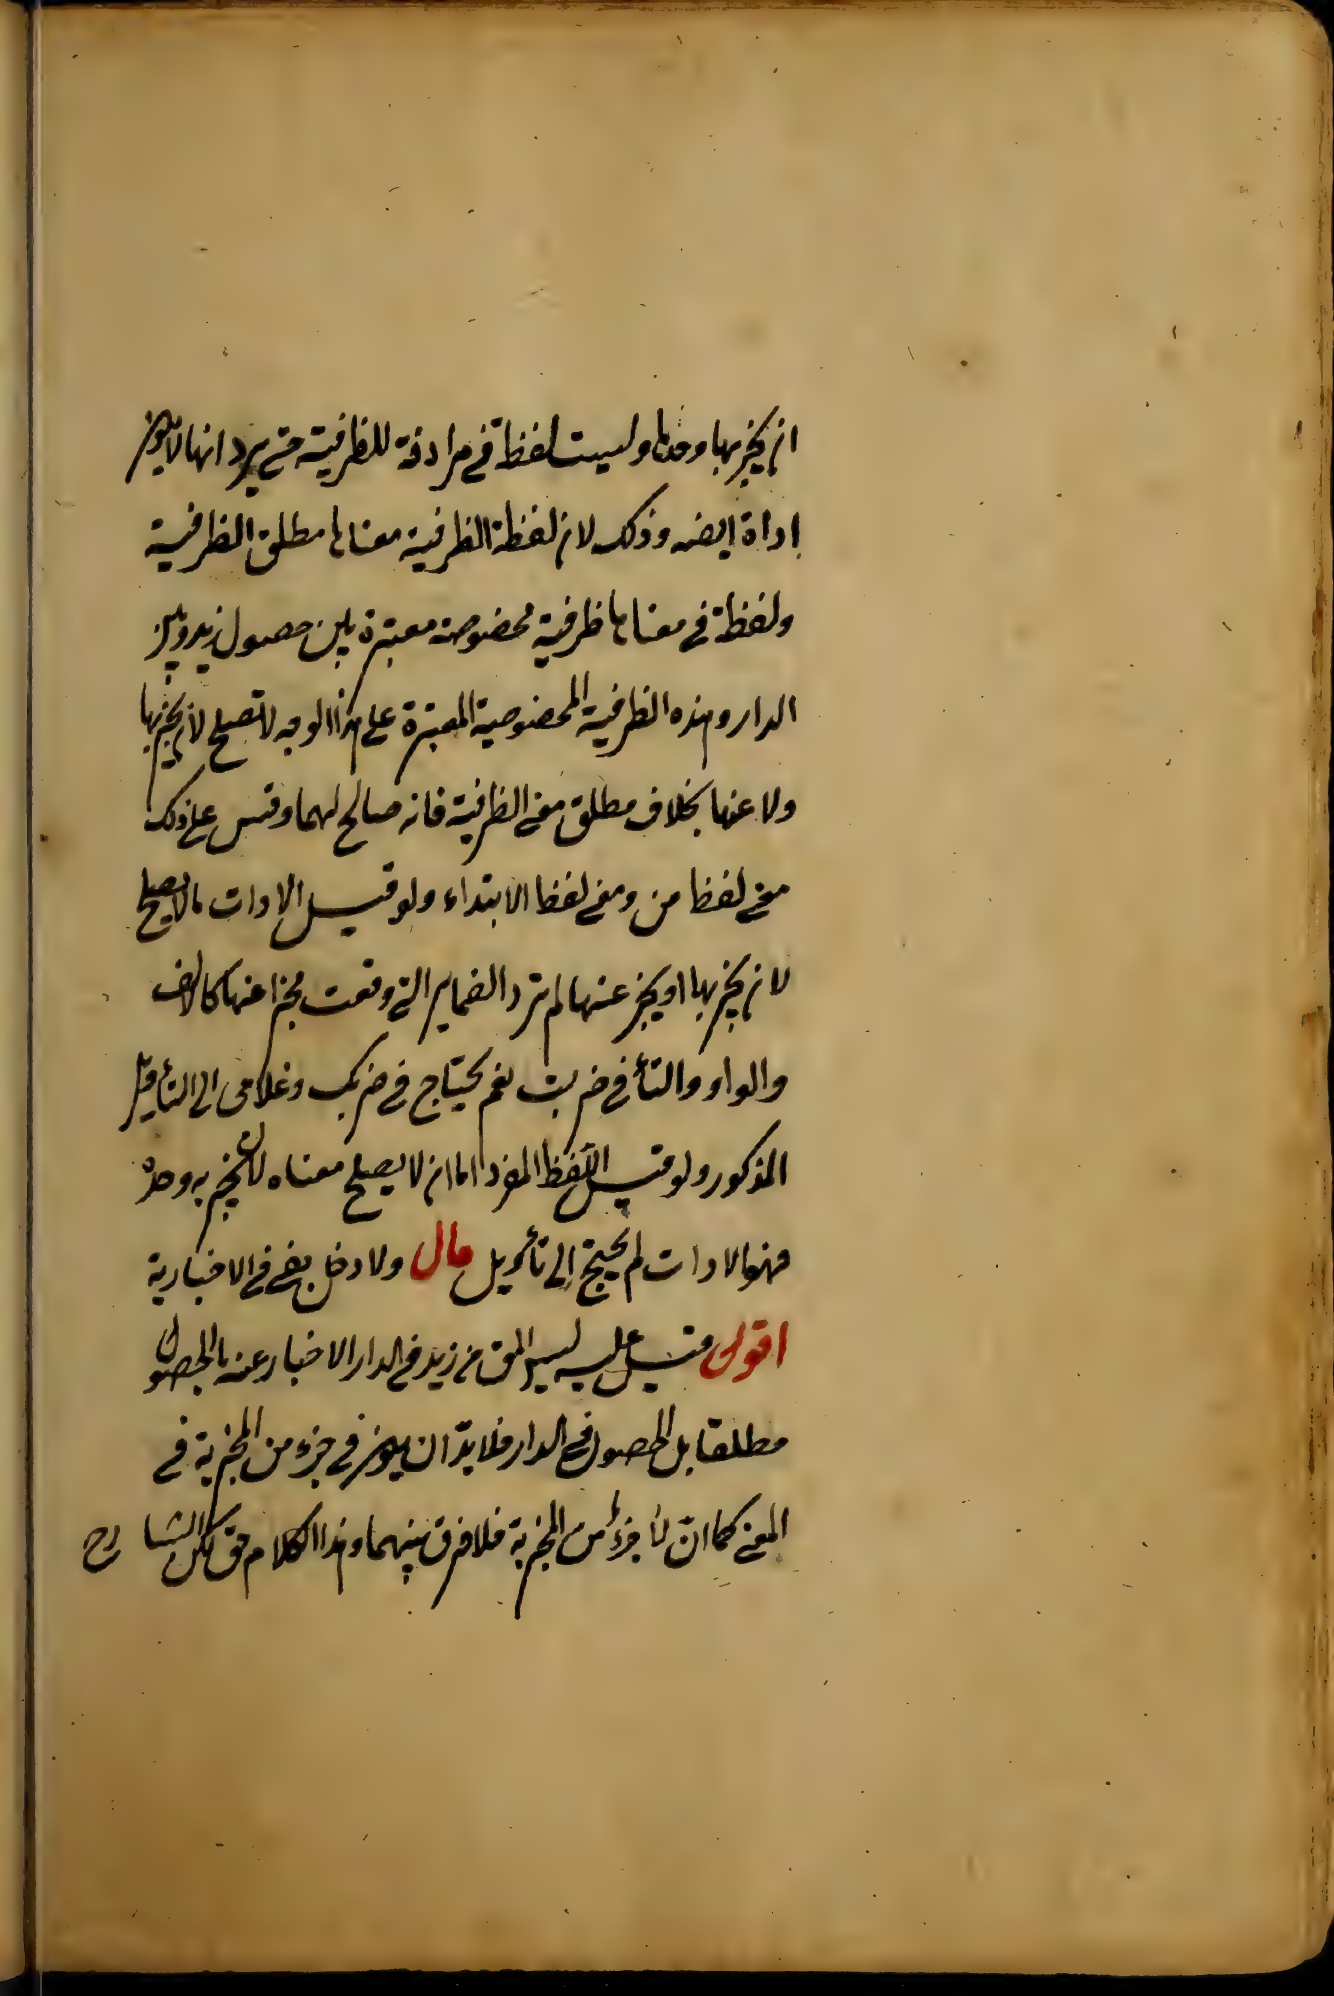 ان يخبر بها وحدها وليست لفظة في مرادفة للظرفية حتى يرد انها لا يكون
اداة ايضه وذلك لان لفظة الظرفية معناها مطلق الظرفية
ولفظة في معناها ظرفية مخصوصة معتبرة بين حصول زيد وبين
الدار وهذه الظرفية المخصوصية المعتبرة على هذا الوجه لا تصلح لان يخبر بها
ولا عنها بخلاف مطلق معنى الظرفية فانه صالح لهما وقس على ذلك
معنى لفظ من ومعنى لفظ الابتداء ولو قيل الادات ما لا يصلح
لان يخبر بها او يخبر عنها لم ترد الضماير التي وقعت مخبرا عنها كالالف
والواو والتأ في ضربت نعم يحتاج في ضربك وغلامى الى التأويل
المذكور ولو قيل اللفظ المفرد اما ان لا يصلح معناه لان يخبر به وحده
فهو الادات لم يحتج الى تأويل قال ولا دخل بفى في الاخبارية
اقول قيل عليه ليس المق من زيد في الدار الاخبار عنه بالحصول
مطلقا بل الحصول في الدار فلا بدّ ان يكون في جزء من المخبر به في
المعنى كما ان لا جزءٌ من المخبر به فلا فرق بينهما وهذا الكلام حق لكن الشا رح